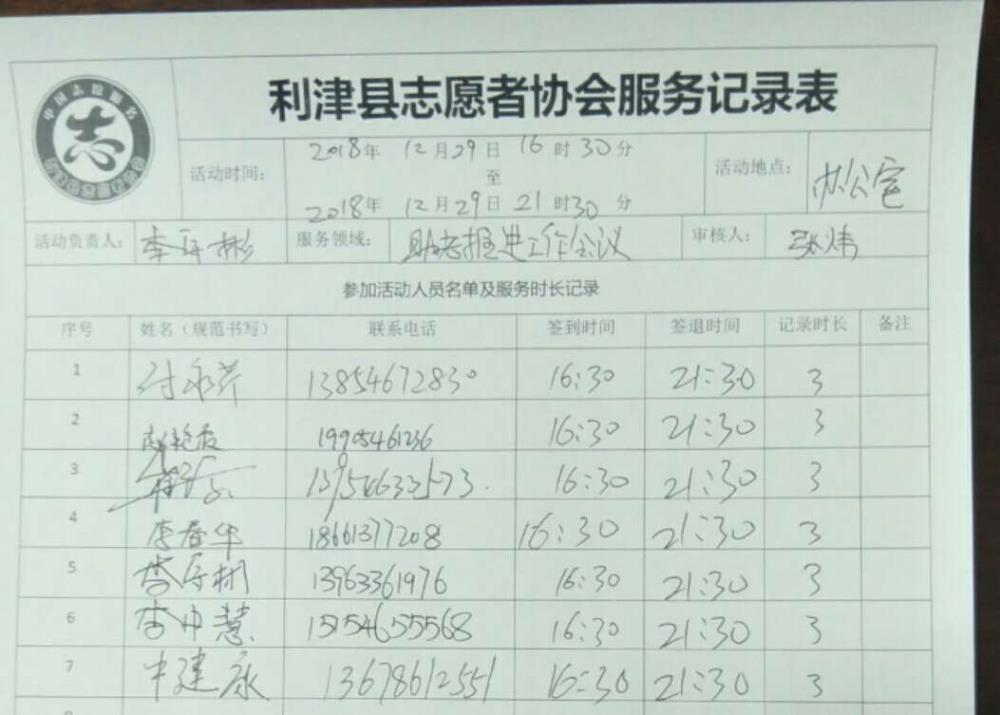 利津县志愿者协会服务记录表
志
活动时间: 2018年 12月29日 16时30分 活动地点: 办公室
至
2018年 12月29日 21时30分
活动负责人: 服务领域: 助老推进工作会议 审核人: 张炜
参加活动人员名单及服务时长记录
序号 姓名(规范书写) 联系电话 签到时间 签退时间 记录时长 备注
1 付永芹 13854672830 16:30 21:30 3
2 19905461236 16:30 21:30 3
3 16:30 21:30 3
4 李春华 18661377208 16:30 21:30 3
5 13963361976 16:30 21:30 3
6 李中慧 15154655568 16:30 21:30 3
7 中建永 13678612551 16:30 21:30 3